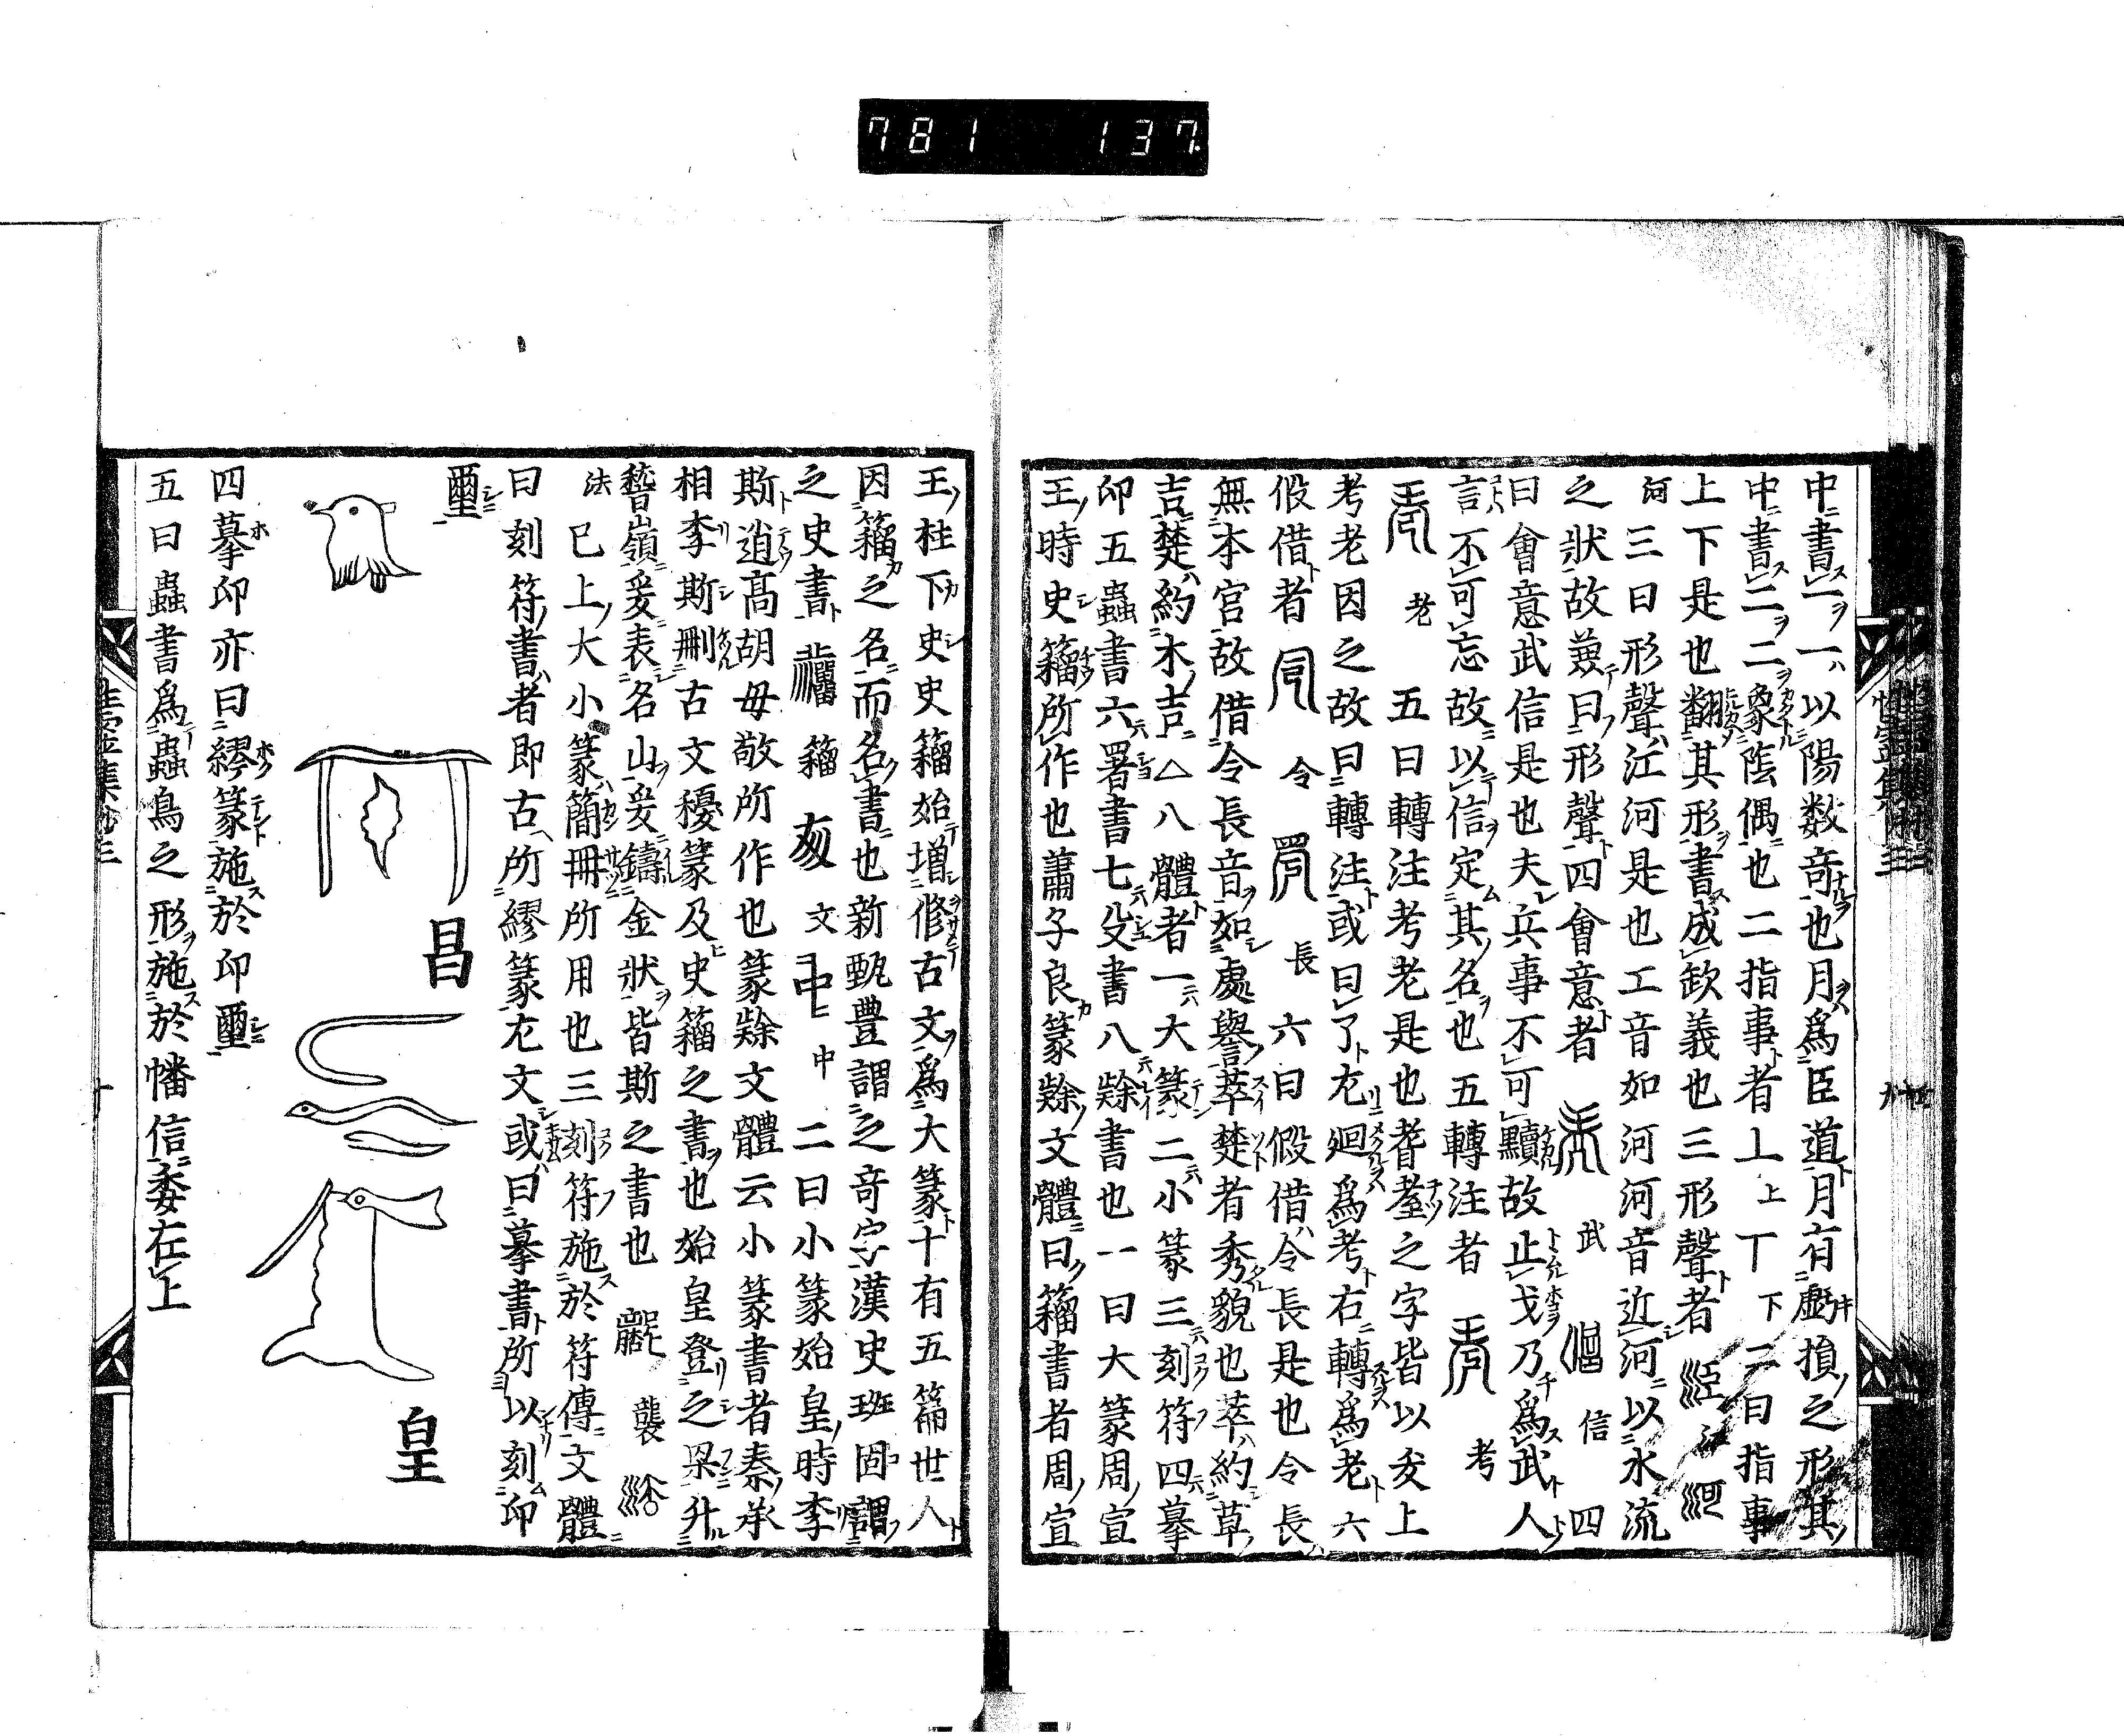 781 137
中書一一以陽数竒也月為臣道月有虧損之形其
中書二二象陰偶也二指事者丄上丅下二曰指事
上下是也翻其形書成欸義也三形聲者江河
河三曰形聲江河是也工音如河河音近河以水流
之狀故羙曰形聲四會意者武信四
曰會意武信是也夫兵事不可黷故止戈乃為武人
言不可忘故以信定其名也五轉注者考
老五曰轉注考老是也耆耋之字皆以㐅上
考老因之故曰轉注或曰了左廻為考右轉為老六
假借者令長六曰假借令長是也令長
無本官故借令長音如處譽萃楚者秀貌也萃約草
吉楚約木吉△八體者一大篆二小篆三刻符四摹
印五蟲書六署書七殳書八隸書也一曰大篆周宣
王時史籀所作也蕭子良篆隸文體曰籀書者周宣
王柱下史史籀始増修古文為大篆十有五篇世人
因籀之名而名書也新甄豊謂之竒字漢史班固謂
之史書籀文中二曰小篆始皇時李
斯逍髙胡毋敬所作也篆隸文體云小篆書者秦丞
相李斯刪古文穆篆及史籀之書也始皇登之梁升
嶺爰表名山爰鑄金狀皆斯之書也襲
法已上大小篆簡冊所用也三刻符施於符傳文體
曰刻符書者即古所繆篆尤文或曰摹書所以刻印
璽
昌
皇
四摹印亦曰繆篆施於印璽
五曰蟲書為蟲鳥之形施於幡信委在上